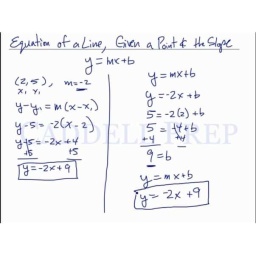 Equation of a Line, Given a Point & the Slope
y = mx + b
(2, 5), m = -2
x, y,
y - y₁ = m(x - x₁)
y - 5 = -2(x - 2)
y - 5 = -2x + 4
+5 +5
y = -2x + 9
y = mx + b
y = -2x + b
5 = -2(2) + b
5 = -4 + b
+4 +4
9 = b
y = mx + b
y = -2x + 9
CADDELL PREP